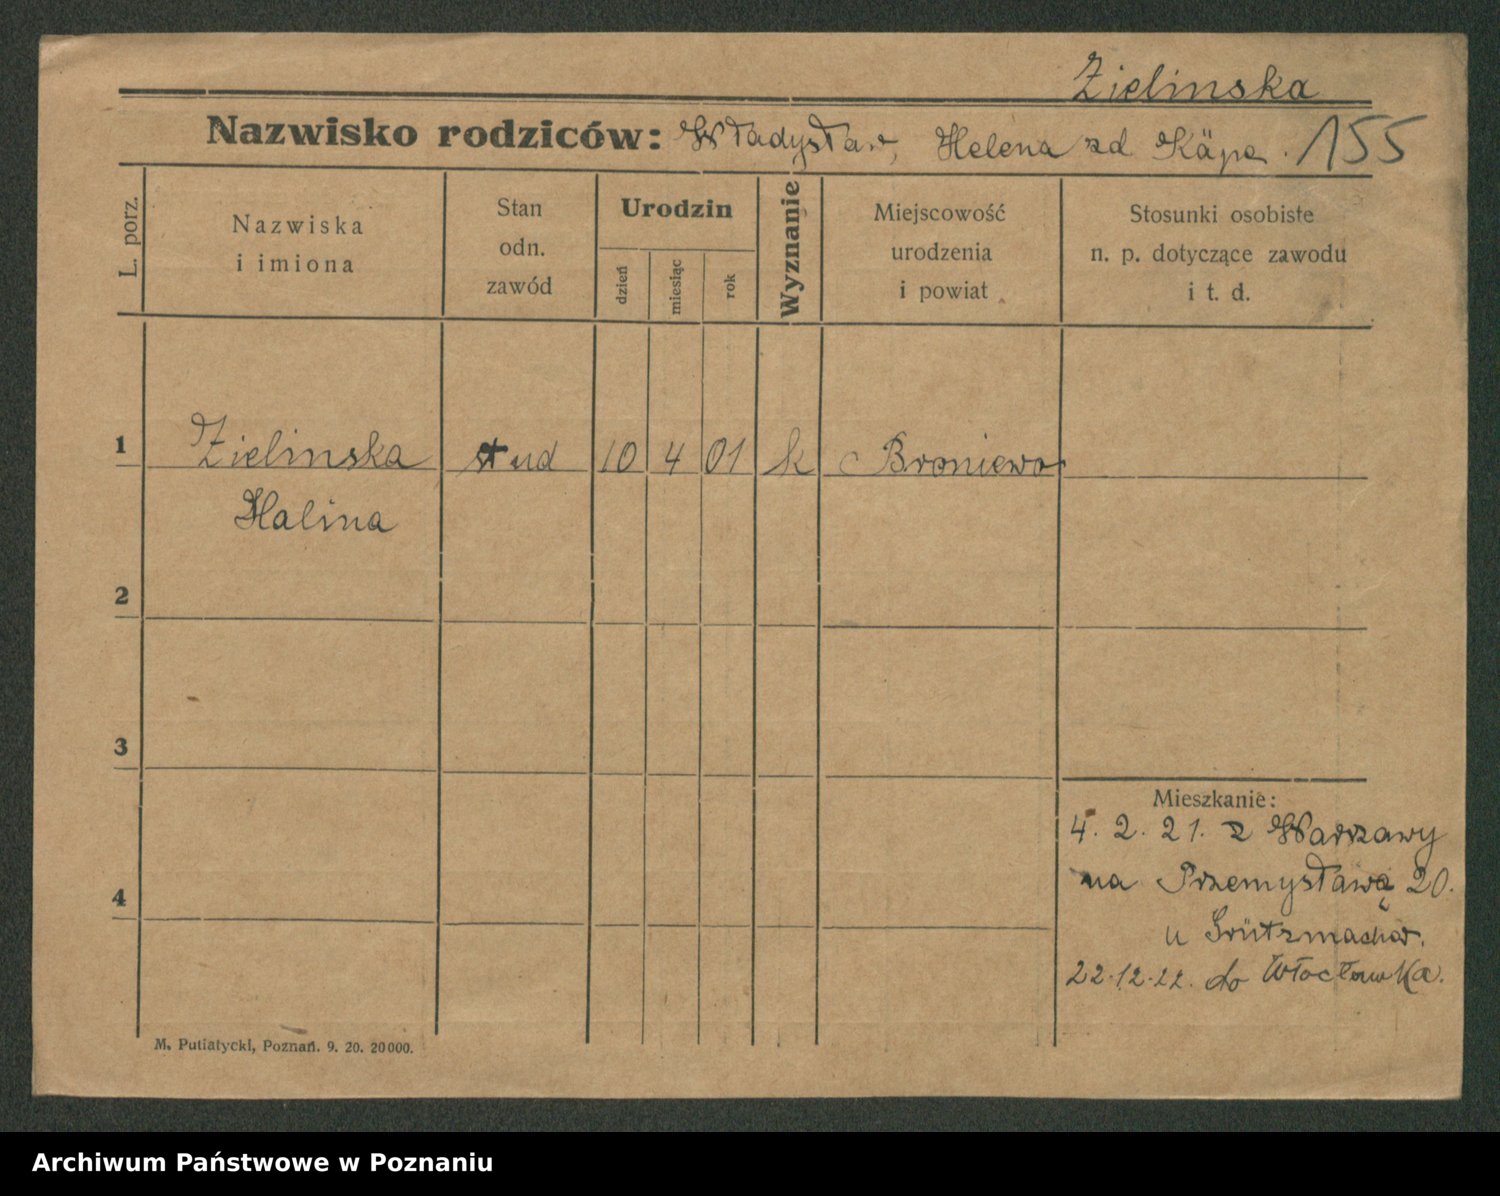 Zielinska
Nazwisko rodziców: Władysław, Helena zd Käpa. 155
L. porz.
Nazwiska
i imiona
Stan
odn.
zawód
Urodzin
dzień
miesiąc
rok
Wyznanie
Miejscowość
urodzenia
i powiat
Stosunki osobiste
n. p. dotyczące zawodu
i t. d.
1 Zielinska stud 10 4 01 k Broniewo
Halina
2
3
Mieszkanie:
4. 2. 21. z Warszawy
4
na Przemysławą 20.
u Grützmacher.
22.12.22. do Włocławka.
M. Putiatycki, Poznań. 9. 20. 20000.
Archiwum Państwowe w Poznaniu